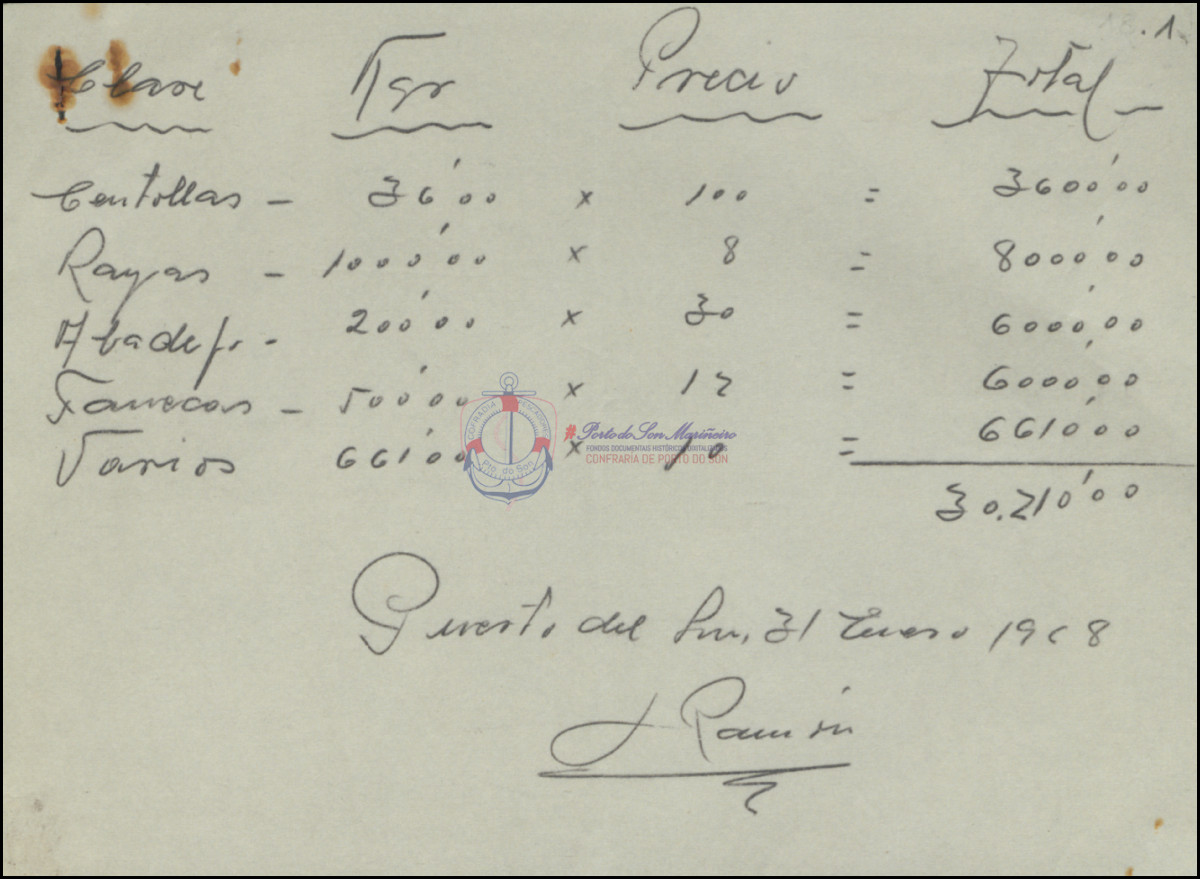 1
Clase Kgr Precio Total
Centollas - 36'00 x 100 = 3600'00
Rayas - 1000'00 x 8 = 8000'00
Abadejo - 200'00 x 30 = 6000'00
Fanecas - 500'00 x 12 = 6000'00
Varios 661'00 x 10 = 6610'00
30.210'00
COFRADIA PESCADORES
Pto. do Son
#Porto do Son Mariñeiro
FONDOS DOCUMENTAIS HISTÓRICOS DIXITALIZADOS
CONFRARÍA DE PORTO DO SON
Puerto del Son, 31 Enero 1968
Ramón